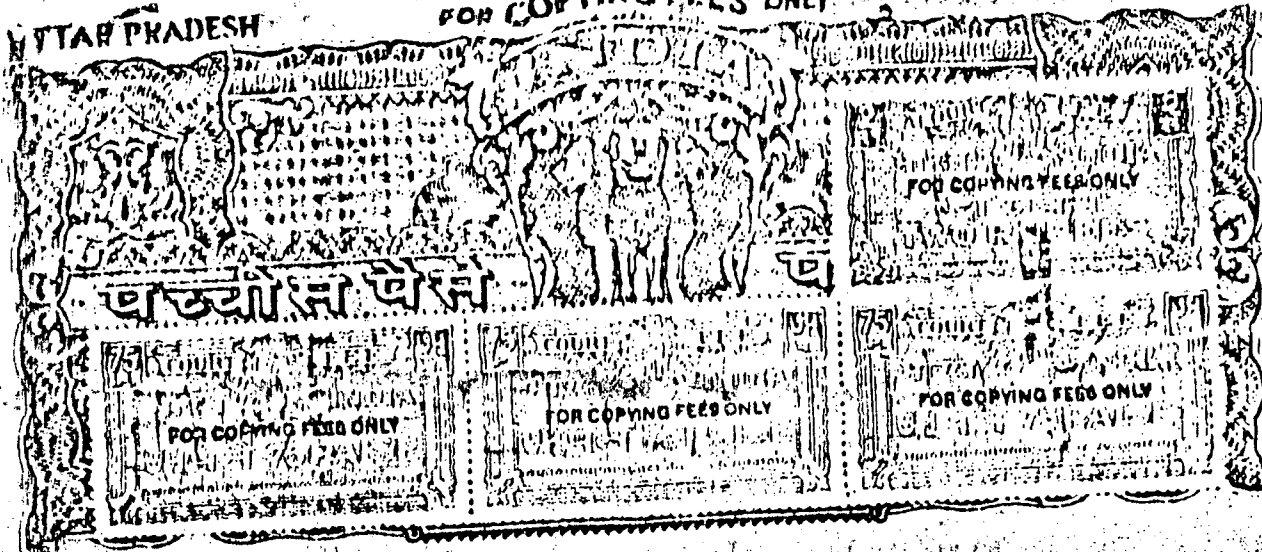 UTTAR PRADESH
FOR COPYING FEES ONLY
INDIA
FOR COPYING FEES ONLY
पच्चीस पैसे
प
75
75
75
FOR COPYING FEES ONLY
FOR COPYING FEES ONLY
FOR COPYING FEES ONLY